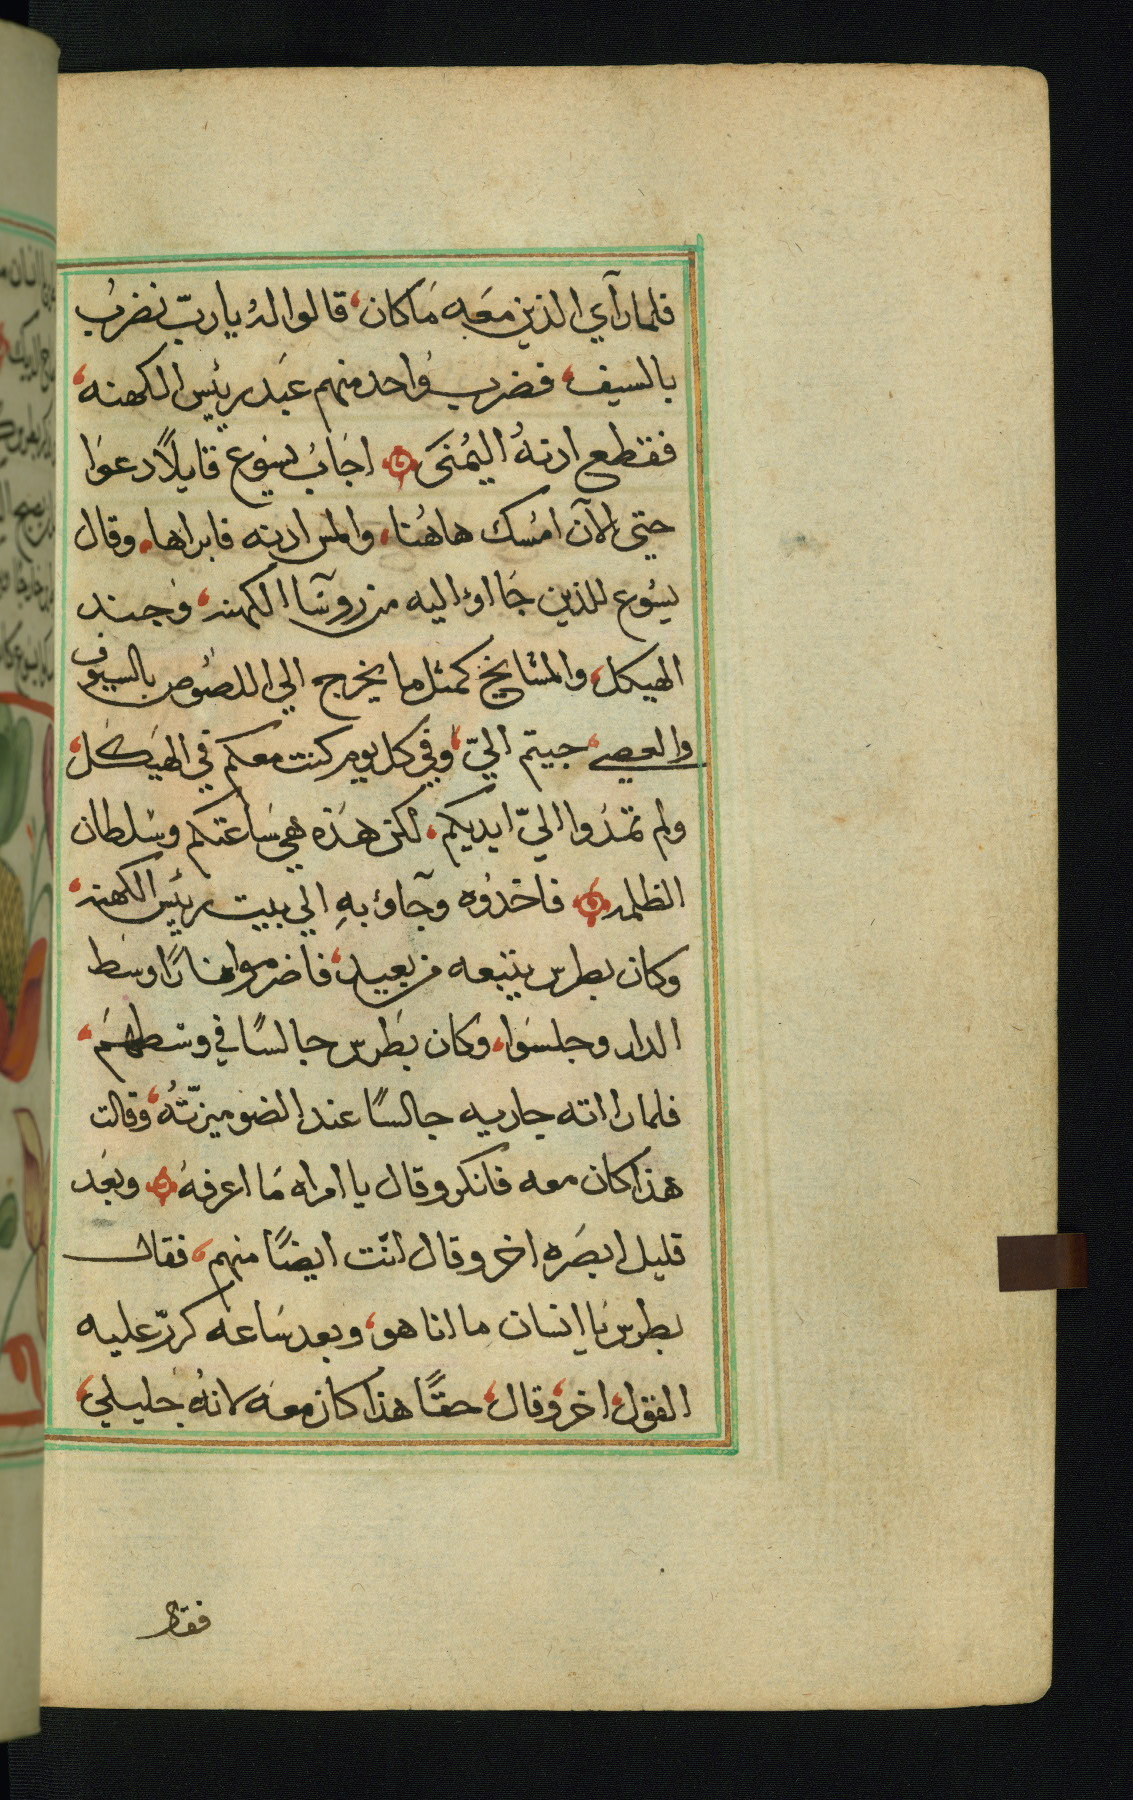 فلما رآي الذين معَه مَا كان، قالوا لهُ يا ربّ نضربُ
بالسيف، فضرب وُاحد منهم عَبد ريئس الكهنه،
فقطع ادنهُ اليُمنَى ۞ اجَابُ يسَوع قايلاً دعوَا
حتي الآن امُسك هاهُنا، ولمس ادنه فابراها، وقال
يسُوع للذين جَااوا اليه من روسَا الكهنه، وُجند
الهيكل، والمشايخ كمثل ما يخرج الي اللصُوص بالسيوف
والعصي، جيتم اليّ، وفي كل يوم كنت معكم في الهَيكل،
ولم تمدَوا اليّ ايديكم، لكن هَذه هي سَاعتكم وسُلطان
الظلمه ۞ فاخدُوه وجآؤ بهِ الي بيت ريئس الكهنه،
وكان بطرس يتبعه من بعيد، فاضرموا نارًا وسَط
الدار وجلسَوا، وَكان بَطرس جالسًا في وسَطهَم،
فلما راته جاريه جالسًا عند الضو ميزتّهُ، وقالت
هذا كان معه فانكر وقال يا امراه مَا اعرفهَ ۞ وبعَد
قليل ابصَره اخر وقال انّت ايضًا منهم، فقال
بطرس يَا انسان ما انا هو، وبعد سَاعه كررّ عليه
القول، اخر، وقال، حقًا هذا كان معَه لانهُ جليلي،
فقال